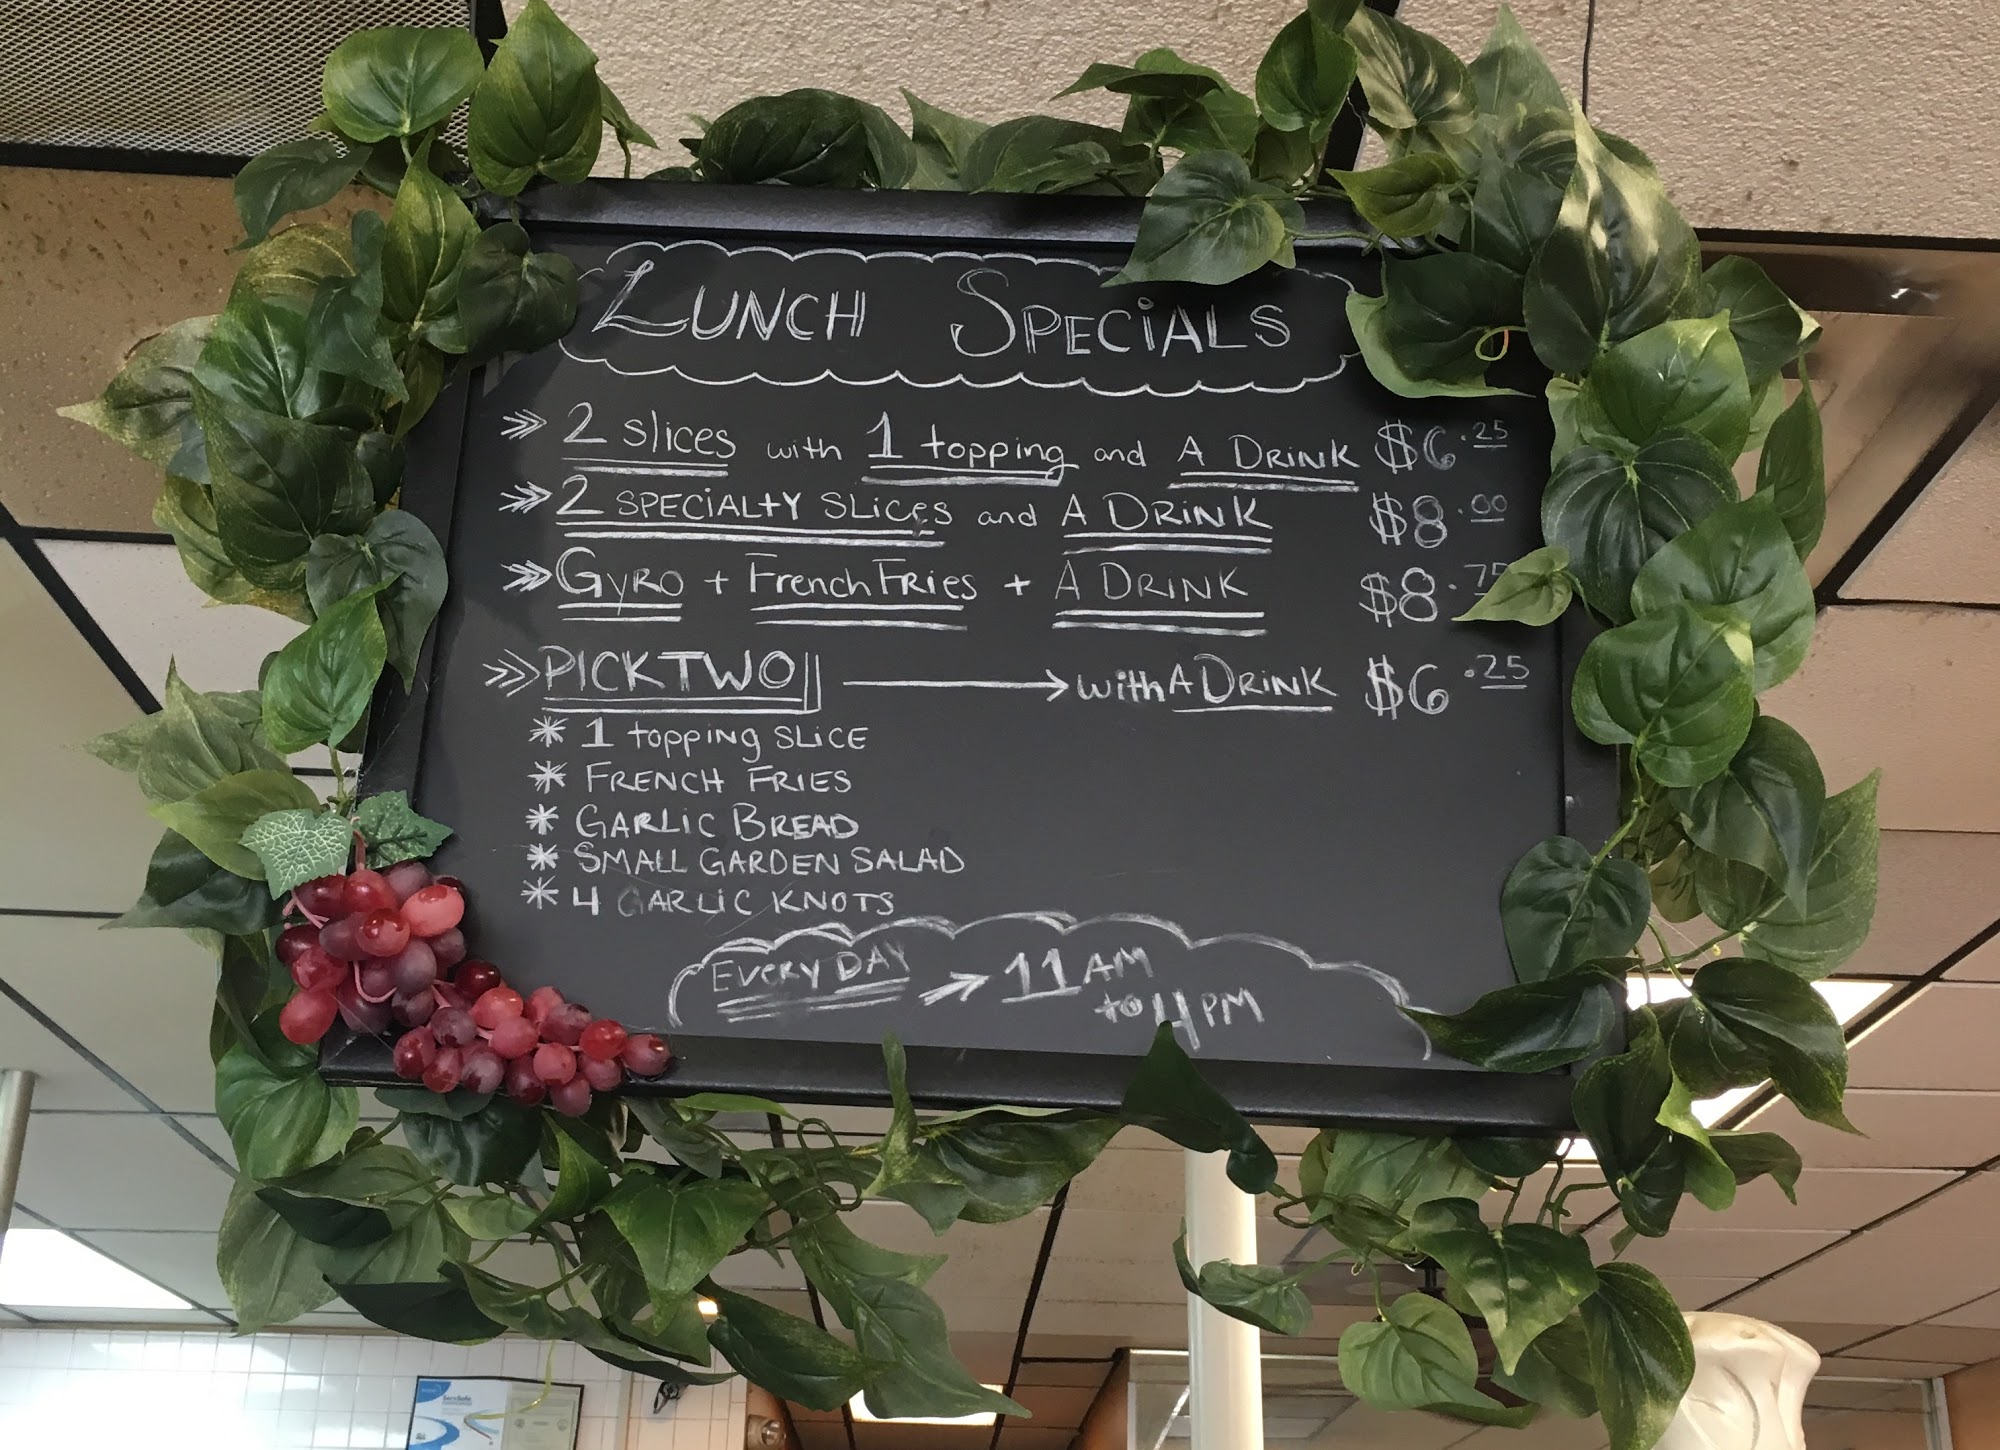 Lunch Specials
2 slices with 1 topping and A Drink $6.25
2 SPECIALTY SLices and A DRINK $8.00
GYRO + French Fries + A DRINK $8.75
PICK TWO with A DRINK $6.25
* 1 topping SLICE
* FRENCH FRIES
* GARLIC BREAD
* SMALL GARDEN SALAD
* 4 GARLIC KNOTS
EVERY DAY 11 AM
to 4 PM
ServSafe